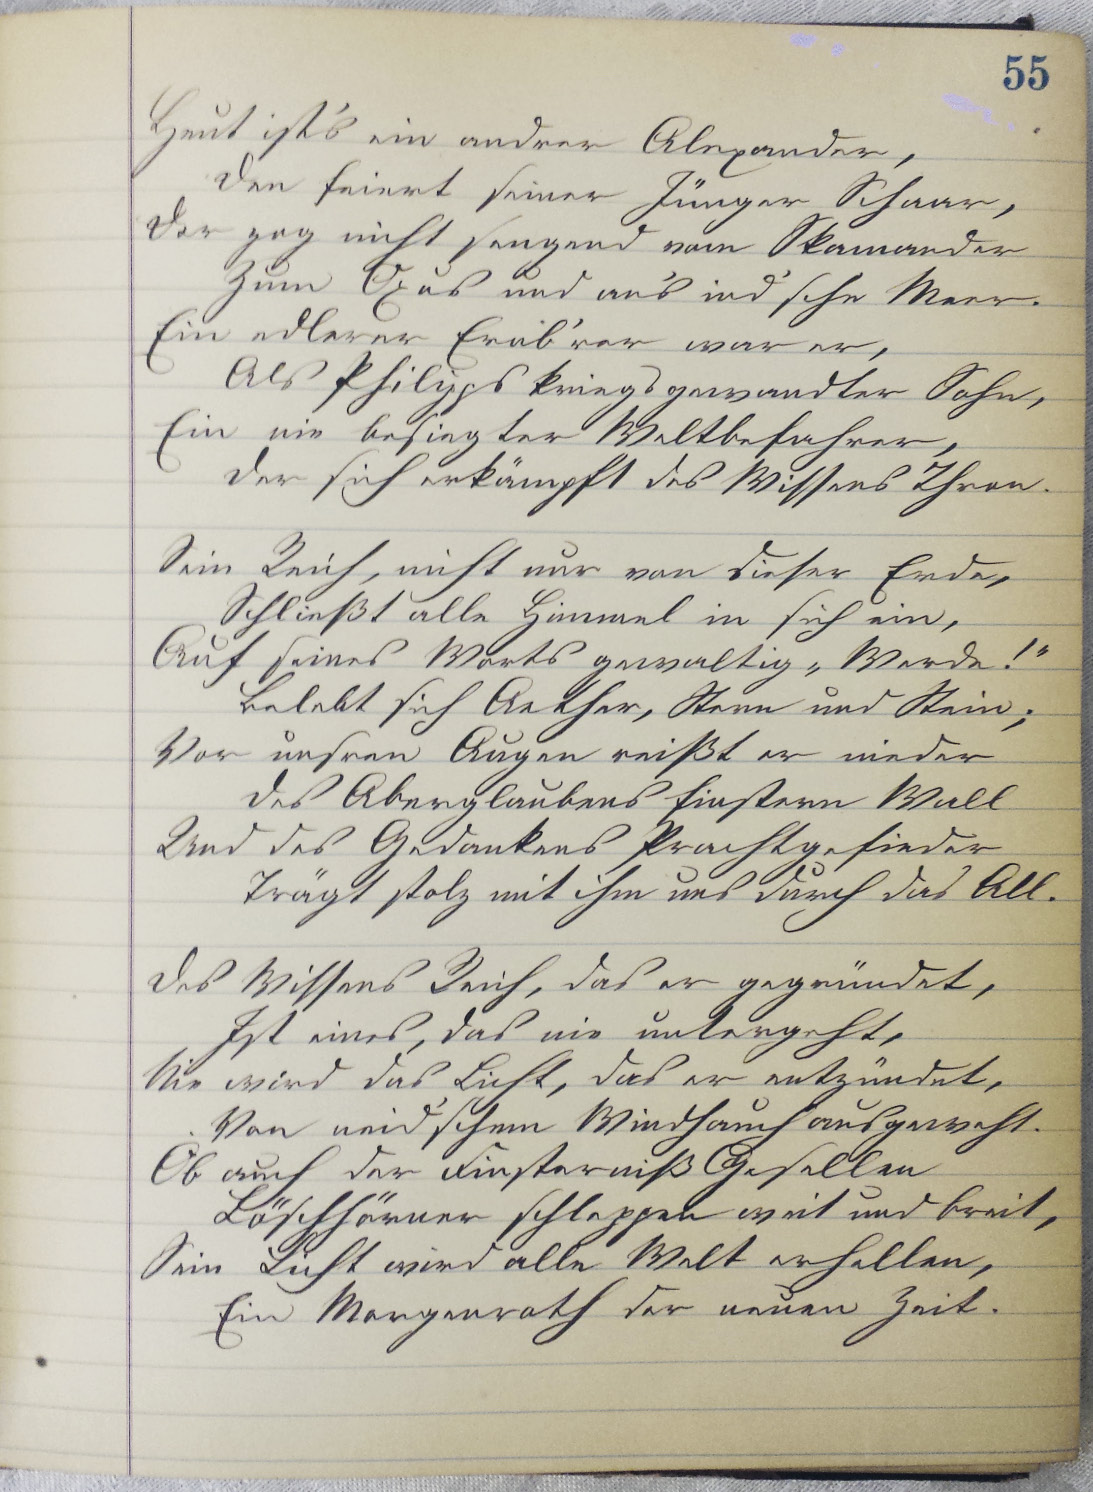 55
Heut ist's ein andrer Alexander,
Den feiert seiner Jünger Schaar,
Der zog nicht sengend vom Skamander
Zum Oxus und an's ind'sche Meer.
Ein edlerer Erob'rer war er,
Als Philipps kriegsgewandter Sohn,
Ein nie besiegter Weltbefahrer,
Der sich erkämpft des Wissens Thron.
Sein Reich, nicht nur von dieser Erde,
Schließt alle Himmel in sich ein,
Auf seines Worts gewaltig „Werde!"
Belebt sich Aether, Stern und Stein;
Vor unsren Augen reißt er nieder
Des Aberglaubens finstern Wall
Und des Gedankens Prachtgefieder
Trägt stolz mit ihm uns durch das All.
Des Wissens Reich, das er gegründet,
Ist eines, das nie untergeht,
Nie wird das Licht, das er entzündet,
Von neid'schem Windhauch ausgeweht.
Ob auch der Finsterniß Gesellen
Löschhörner schleppen weit und breit,
Sein Licht wird alle Welt erhellen,
Ein Morgenroth der neuen Zeit.